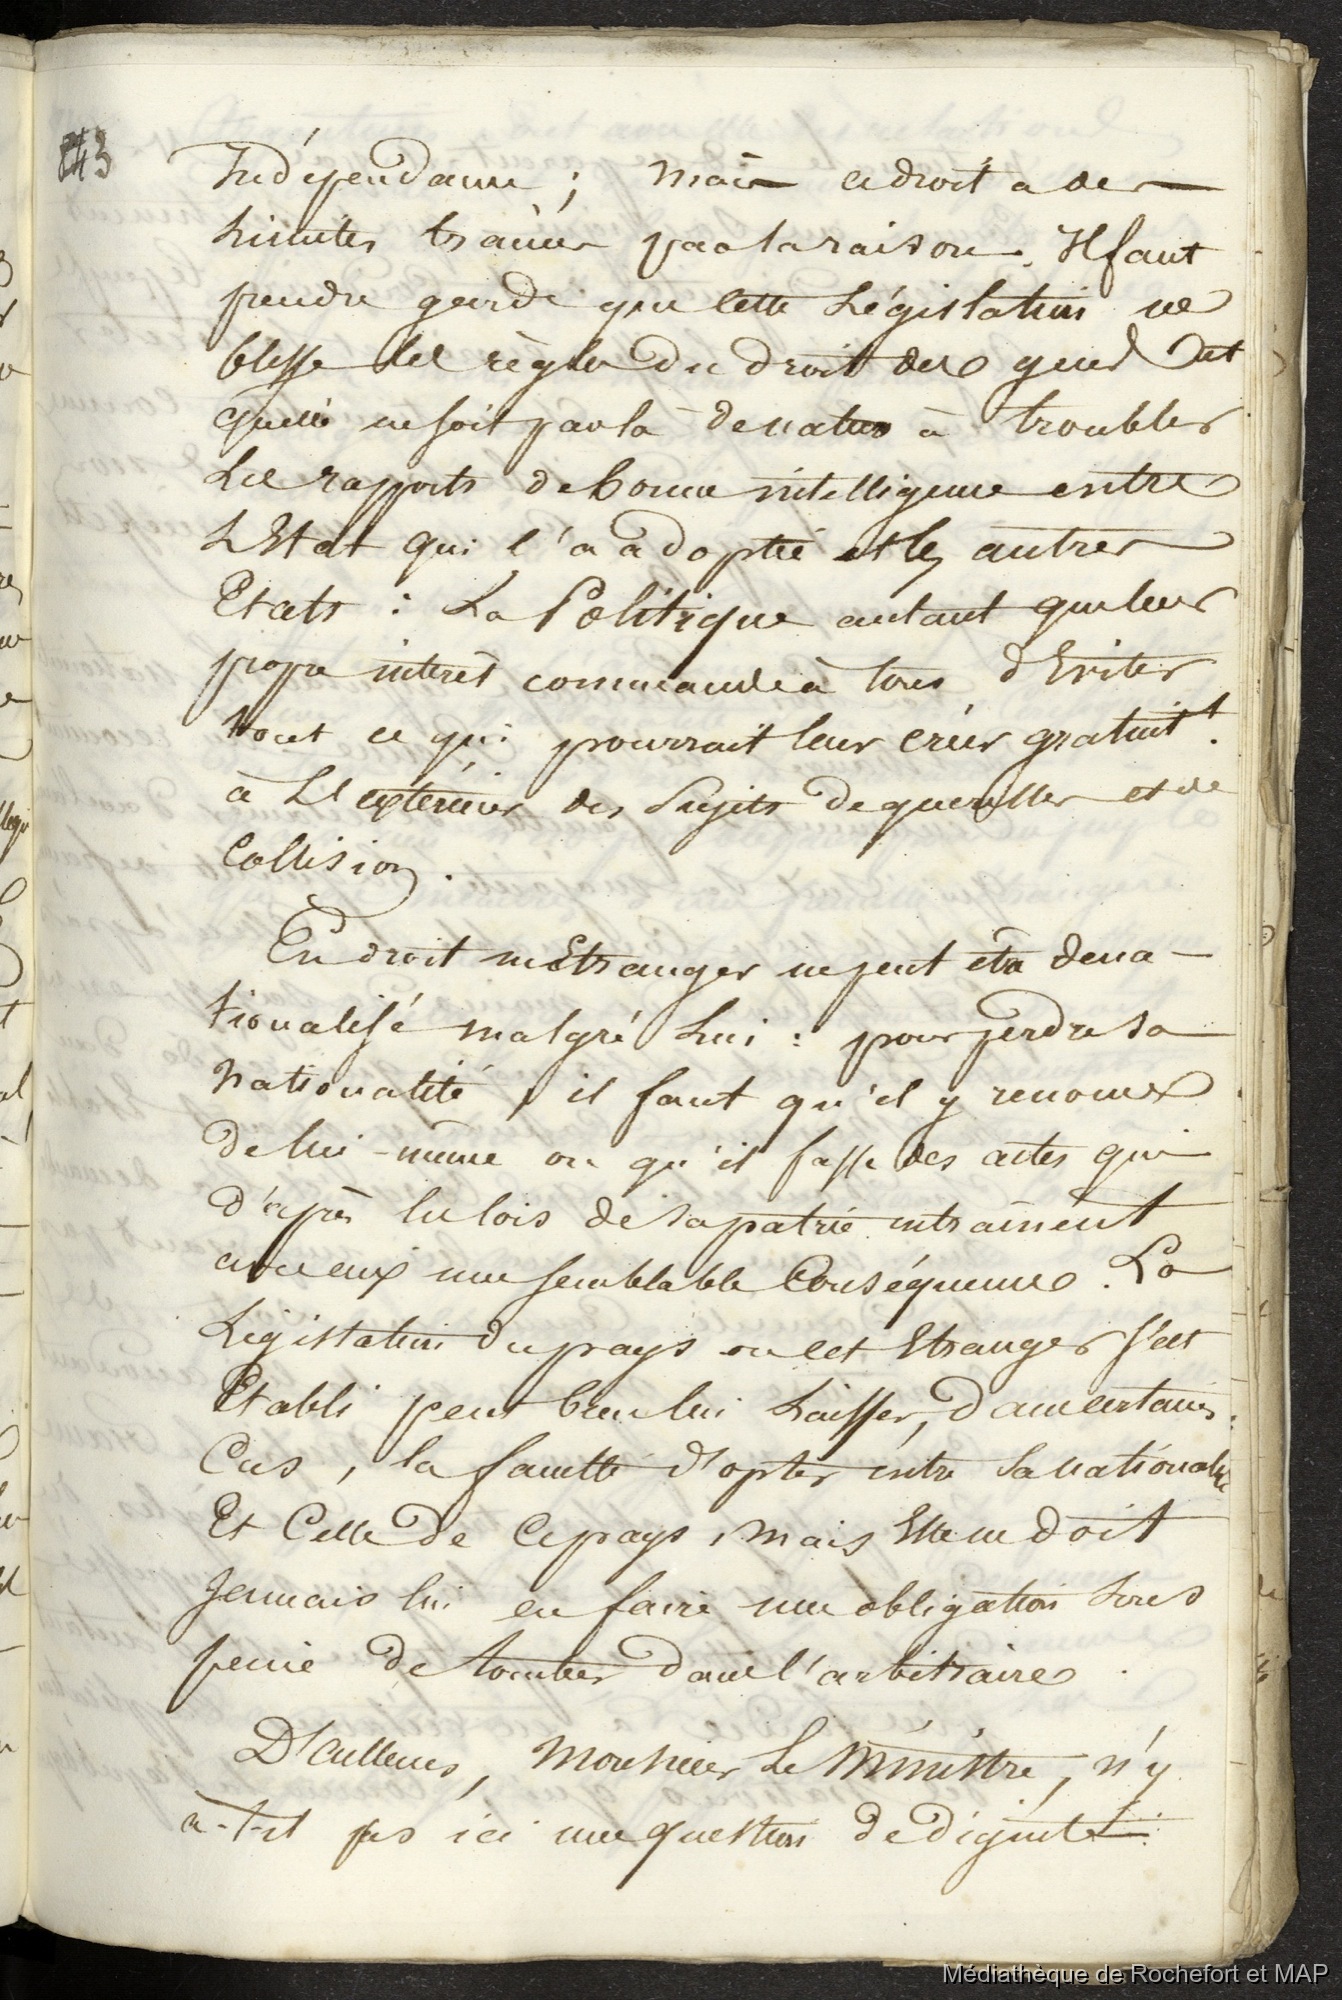 143
Indépendance ; mais ce droit a des
Limites tracées par la raison. Il faut
prendre garde que cette Législation ne
blesse les règles du droit des gens et
qu'elle ne soit par là de nature à troubler
Les rapports de bonne intelligence entre
L'Etat qui l'a adoptée et les autres
Etats : La Politique autant que leur
propre intérêt commande à tous d'Eviter
tout ce qui pourrait leur créer gratuit.t
à L'extérieur des Sujets de querelles et de
Collision.
En droit un Etranger ne peut être déna-
tionalisé malgré Lui : pour perdre sa
nationalité, il faut qu'il y renonce
de lui-même ou qu'il fasse des actes qui
d'après les lois de sa patrie entraînent
avec eux une semblable Conséquence. La
Législation du pays ou cet Etranger s'est
Etabli peut bien lui Laisser, dans certains
Cas, la faculté d'opter entre sa nationalité
Et Celle de Ce pays, mais Elle ne doit
Jamais lui en faire une obligation sous
peine de tomber dans l'arbitraire.
D'ailleurs, Monsieur Le Ministre, n'y
a-t-il pas ici une question de dignité
Médiathèque de Rochefort et MAP